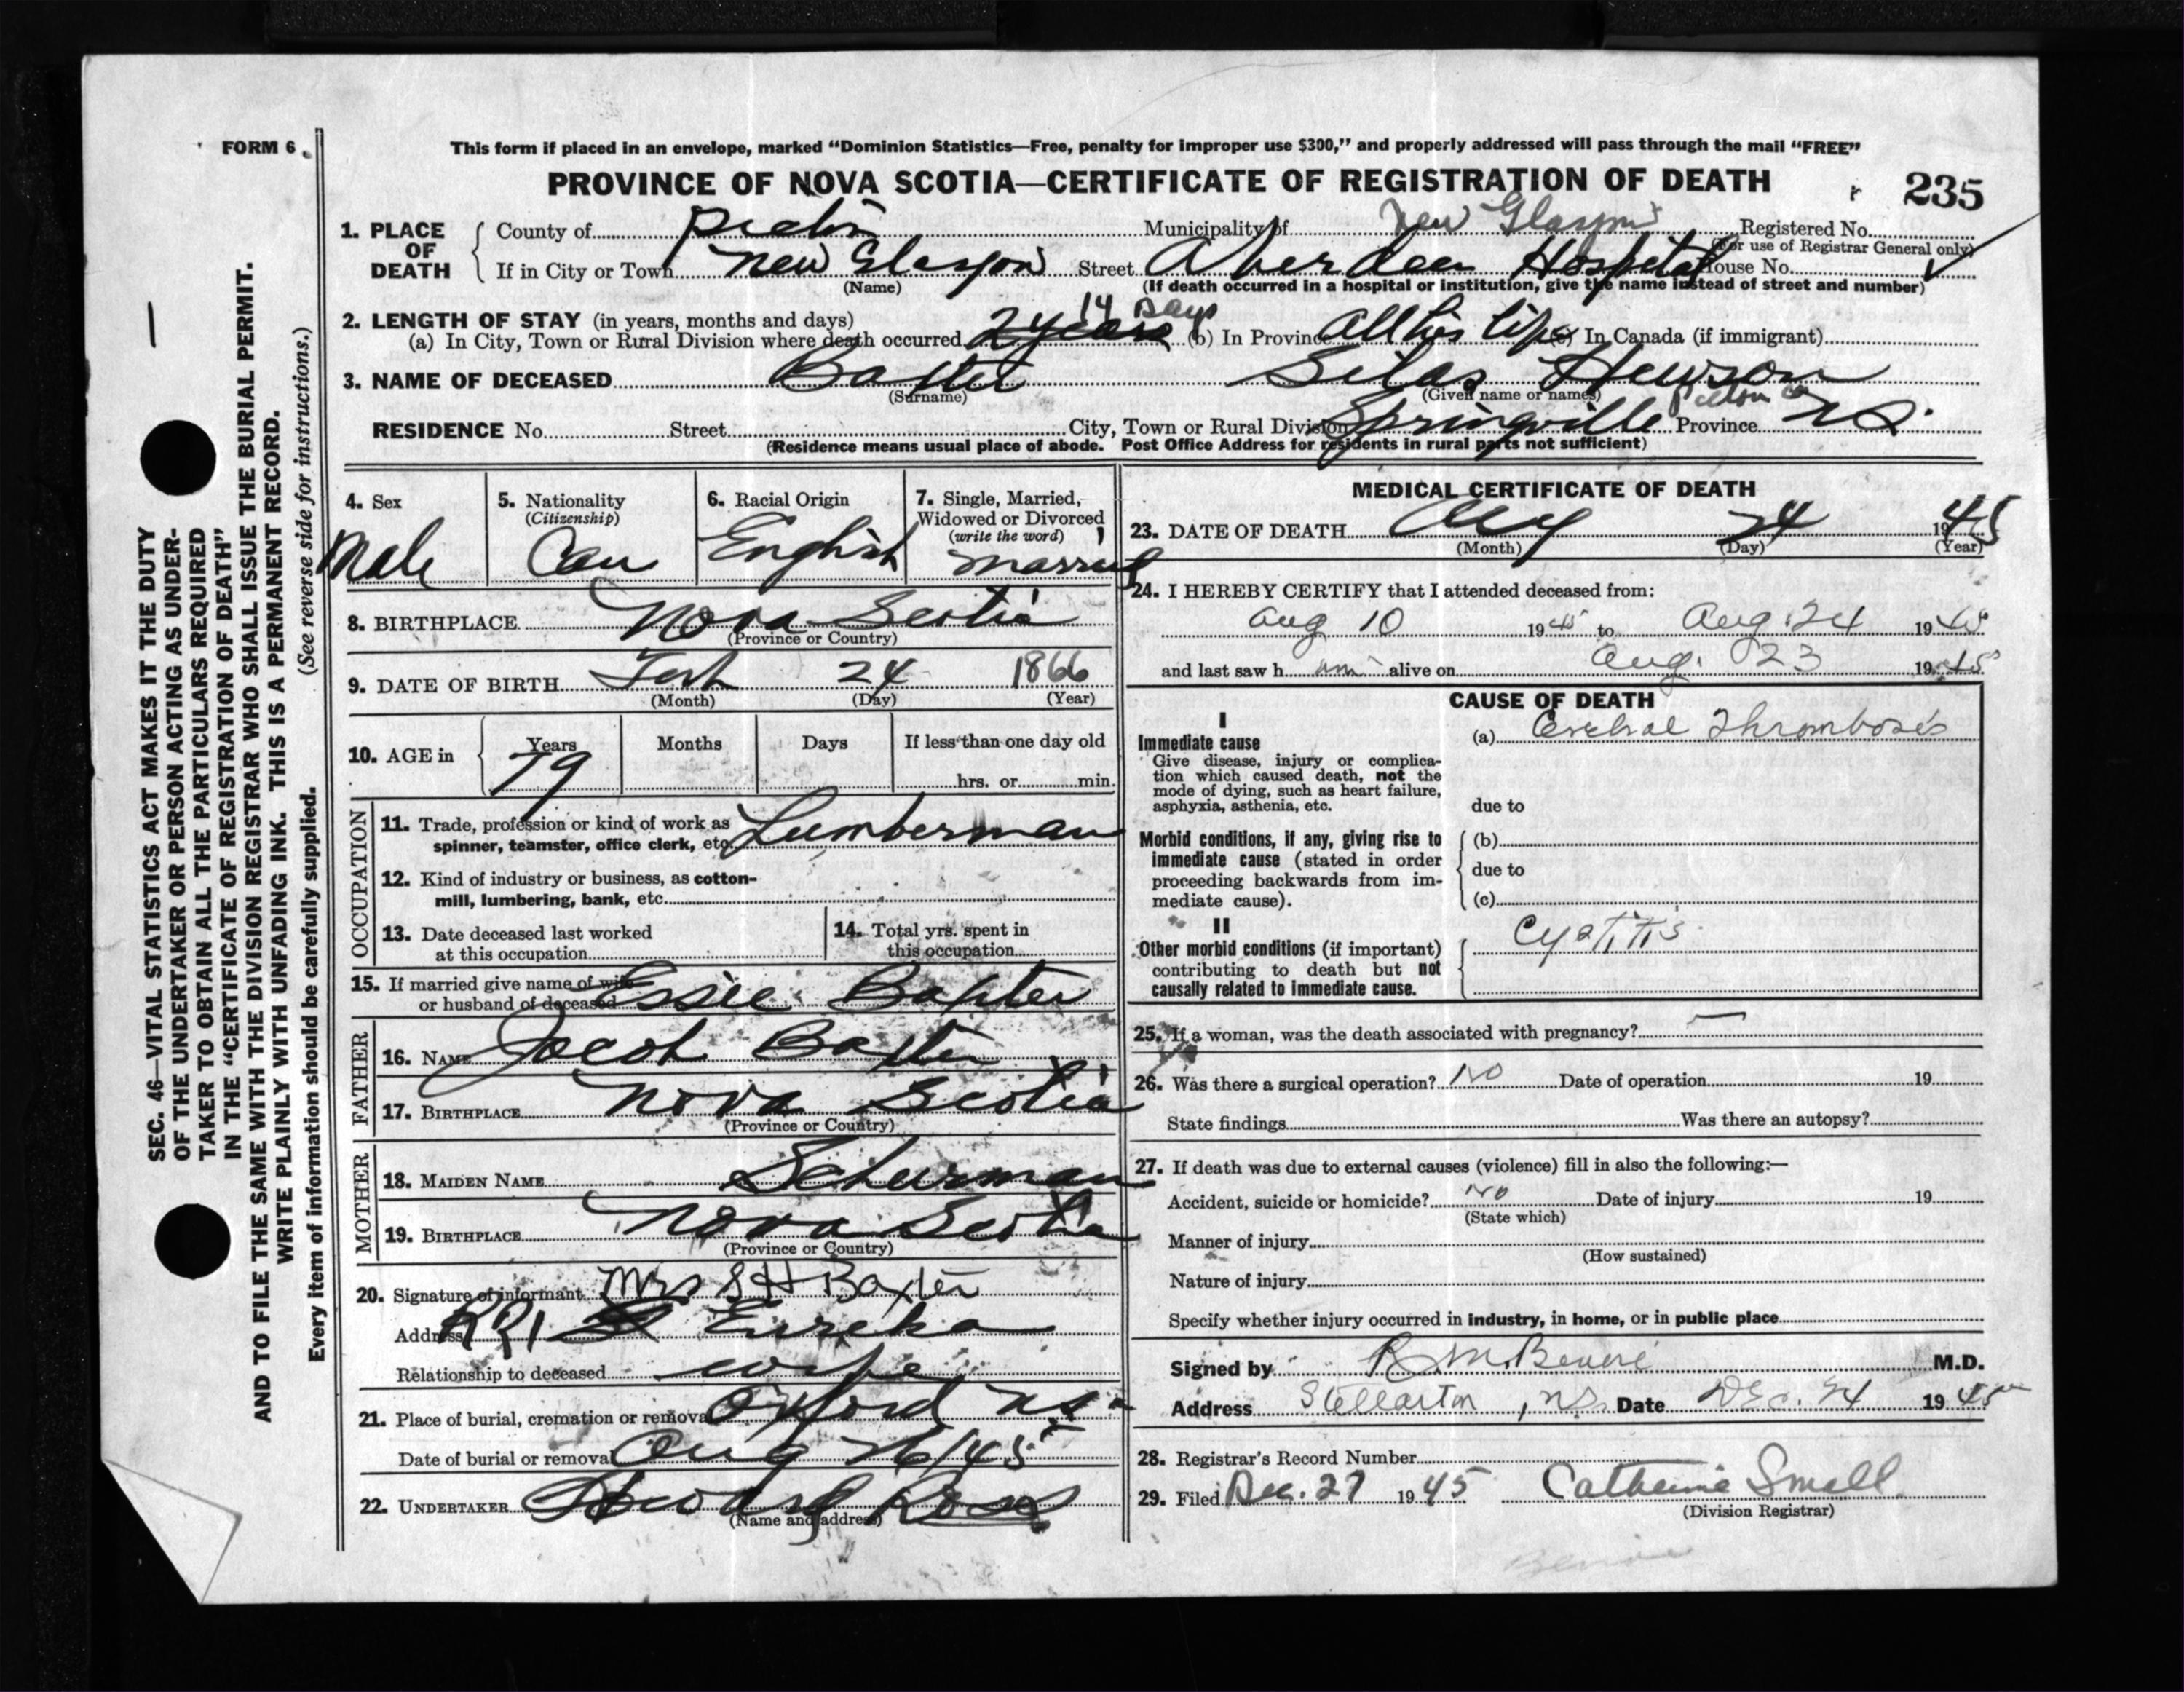 FORM 6.
This form if placed in an envelope, marked "Dominion Statistics—Free, penalty for improper use $300," and properly addressed will pass through the mail "FREE"
PROVINCE OF NOVA SCOTIA—CERTIFICATE OF REGISTRATION OF DEATH
235
1. PLACE OF DEATH
County of Pictou Municipality of New Glasgow Registered No.
(For use of Registrar General only)
If in City or Town New Glasgow Street Aberdeen Hospital House No.
(Name) (If death occurred in a hospital or institution, give the name instead of street and number)
2. LENGTH OF STAY (in years, months and days) 14 Days
(a) In City, Town or Rural Division where death occurred 2 years (b) In Province All his life (c) In Canada (if immigrant)
3. NAME OF DECEASED Baxter Silas Hewson
(Surname) (Given name or names)
Pictou Co
RESIDENCE No. Street City, Town or Rural Division Springville Province N.S.
(Residence means usual place of abode. Post Office Address for residents in rural parts not sufficient)
4. Sex
Male
5. Nationality
(Citizenship)
Can
6. Racial Origin
English
7. Single, Married,
Widowed or Divorced
(write the word)
Married
8. BIRTHPLACE Nova Scotia
(Province or Country)
9. DATE OF BIRTH Feb 24 1866
(Month) (Day) (Year)
10. AGE in Years Months Days If less than one day old
79 hrs. or min.
OCCUPATION
11. Trade, profession or kind of work as
spinner, teamster, office clerk, etc. Lumberman
12. Kind of industry or business, as cotton-
mill, lumbering, bank, etc.
13. Date deceased last worked
at this occupation
14. Total yrs. spent in
this occupation
15. If married give name of wife
or husband of deceased Essie Baxter
FATHER
16. NAME Jacob Baxter
17. BIRTHPLACE Nova Scotia
(Province or Country)
MOTHER
18. MAIDEN NAME Schurman
19. BIRTHPLACE Nova Scotia
(Province or Country)
20. Signature of informant Mrs S H Baxter
Address RR1 Eureka
Relationship to deceased wife
21. Place of burial, cremation or removal Oxford N.S.
Date of burial or removal Aug 26/45
22. UNDERTAKER Howard Ross
(Name and address)
MEDICAL CERTIFICATE OF DEATH
23. DATE OF DEATH Aug 24 1945
(Month) (Day) (Year)
24. I HEREBY CERTIFY that I attended deceased from:
Aug 10 1945 to Aug. 24 1945
and last saw h im alive on Aug. 23 1945
CAUSE OF DEATH
I
Immediate cause
Give disease, injury or complica-
tion which caused death, not the
mode of dying, such as heart failure,
asphyxia, asthenia, etc.
(a) Cerebral Thrombosis
due to
Morbid conditions, if any, giving rise to
immediate cause (stated in order
proceeding backwards from im-
mediate cause).
(b)
due to
(c)
II
Other morbid conditions (if important)
contributing to death but not
causally related to immediate cause.
Cystitis
25. If a woman, was the death associated with pregnancy? —
26. Was there a surgical operation? No Date of operation 19
State findings Was there an autopsy?
27. If death was due to external causes (violence) fill in also the following:—
Accident, suicide or homicide? No Date of injury 19
(State which)
Manner of injury
(How sustained)
Nature of injury
Specify whether injury occurred in industry, in home, or in public place
Signed by R. M. M.D.
Address Stellarton, N.S. Date Dec. 24 1945
28. Registrar's Record Number
29. Filed Dec. 27 1945 Catherine Small
(Division Registrar)
SEC. 46—VITAL STATISTICS ACT MAKES IT THE DUTY
OF THE UNDERTAKER OR PERSON ACTING AS UNDER-
TAKER TO OBTAIN ALL THE PARTICULARS REQUIRED
IN THE "CERTIFICATE OF REGISTRATION OF DEATH"
AND TO FILE THE SAME WITH THE DIVISION REGISTRAR WHO SHALL ISSUE THE BURIAL PERMIT.
WRITE PLAINLY WITH UNFADING INK. THIS IS A PERMANENT RECORD.
Every item of information should be carefully supplied. (See reverse side for instructions.)